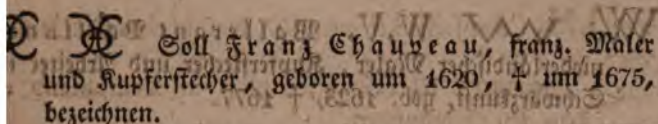 Soll Franz Chauveau, franz. Maler
und Kupferstecher, geboren um 1620, † um 1675,
bezeichnen.